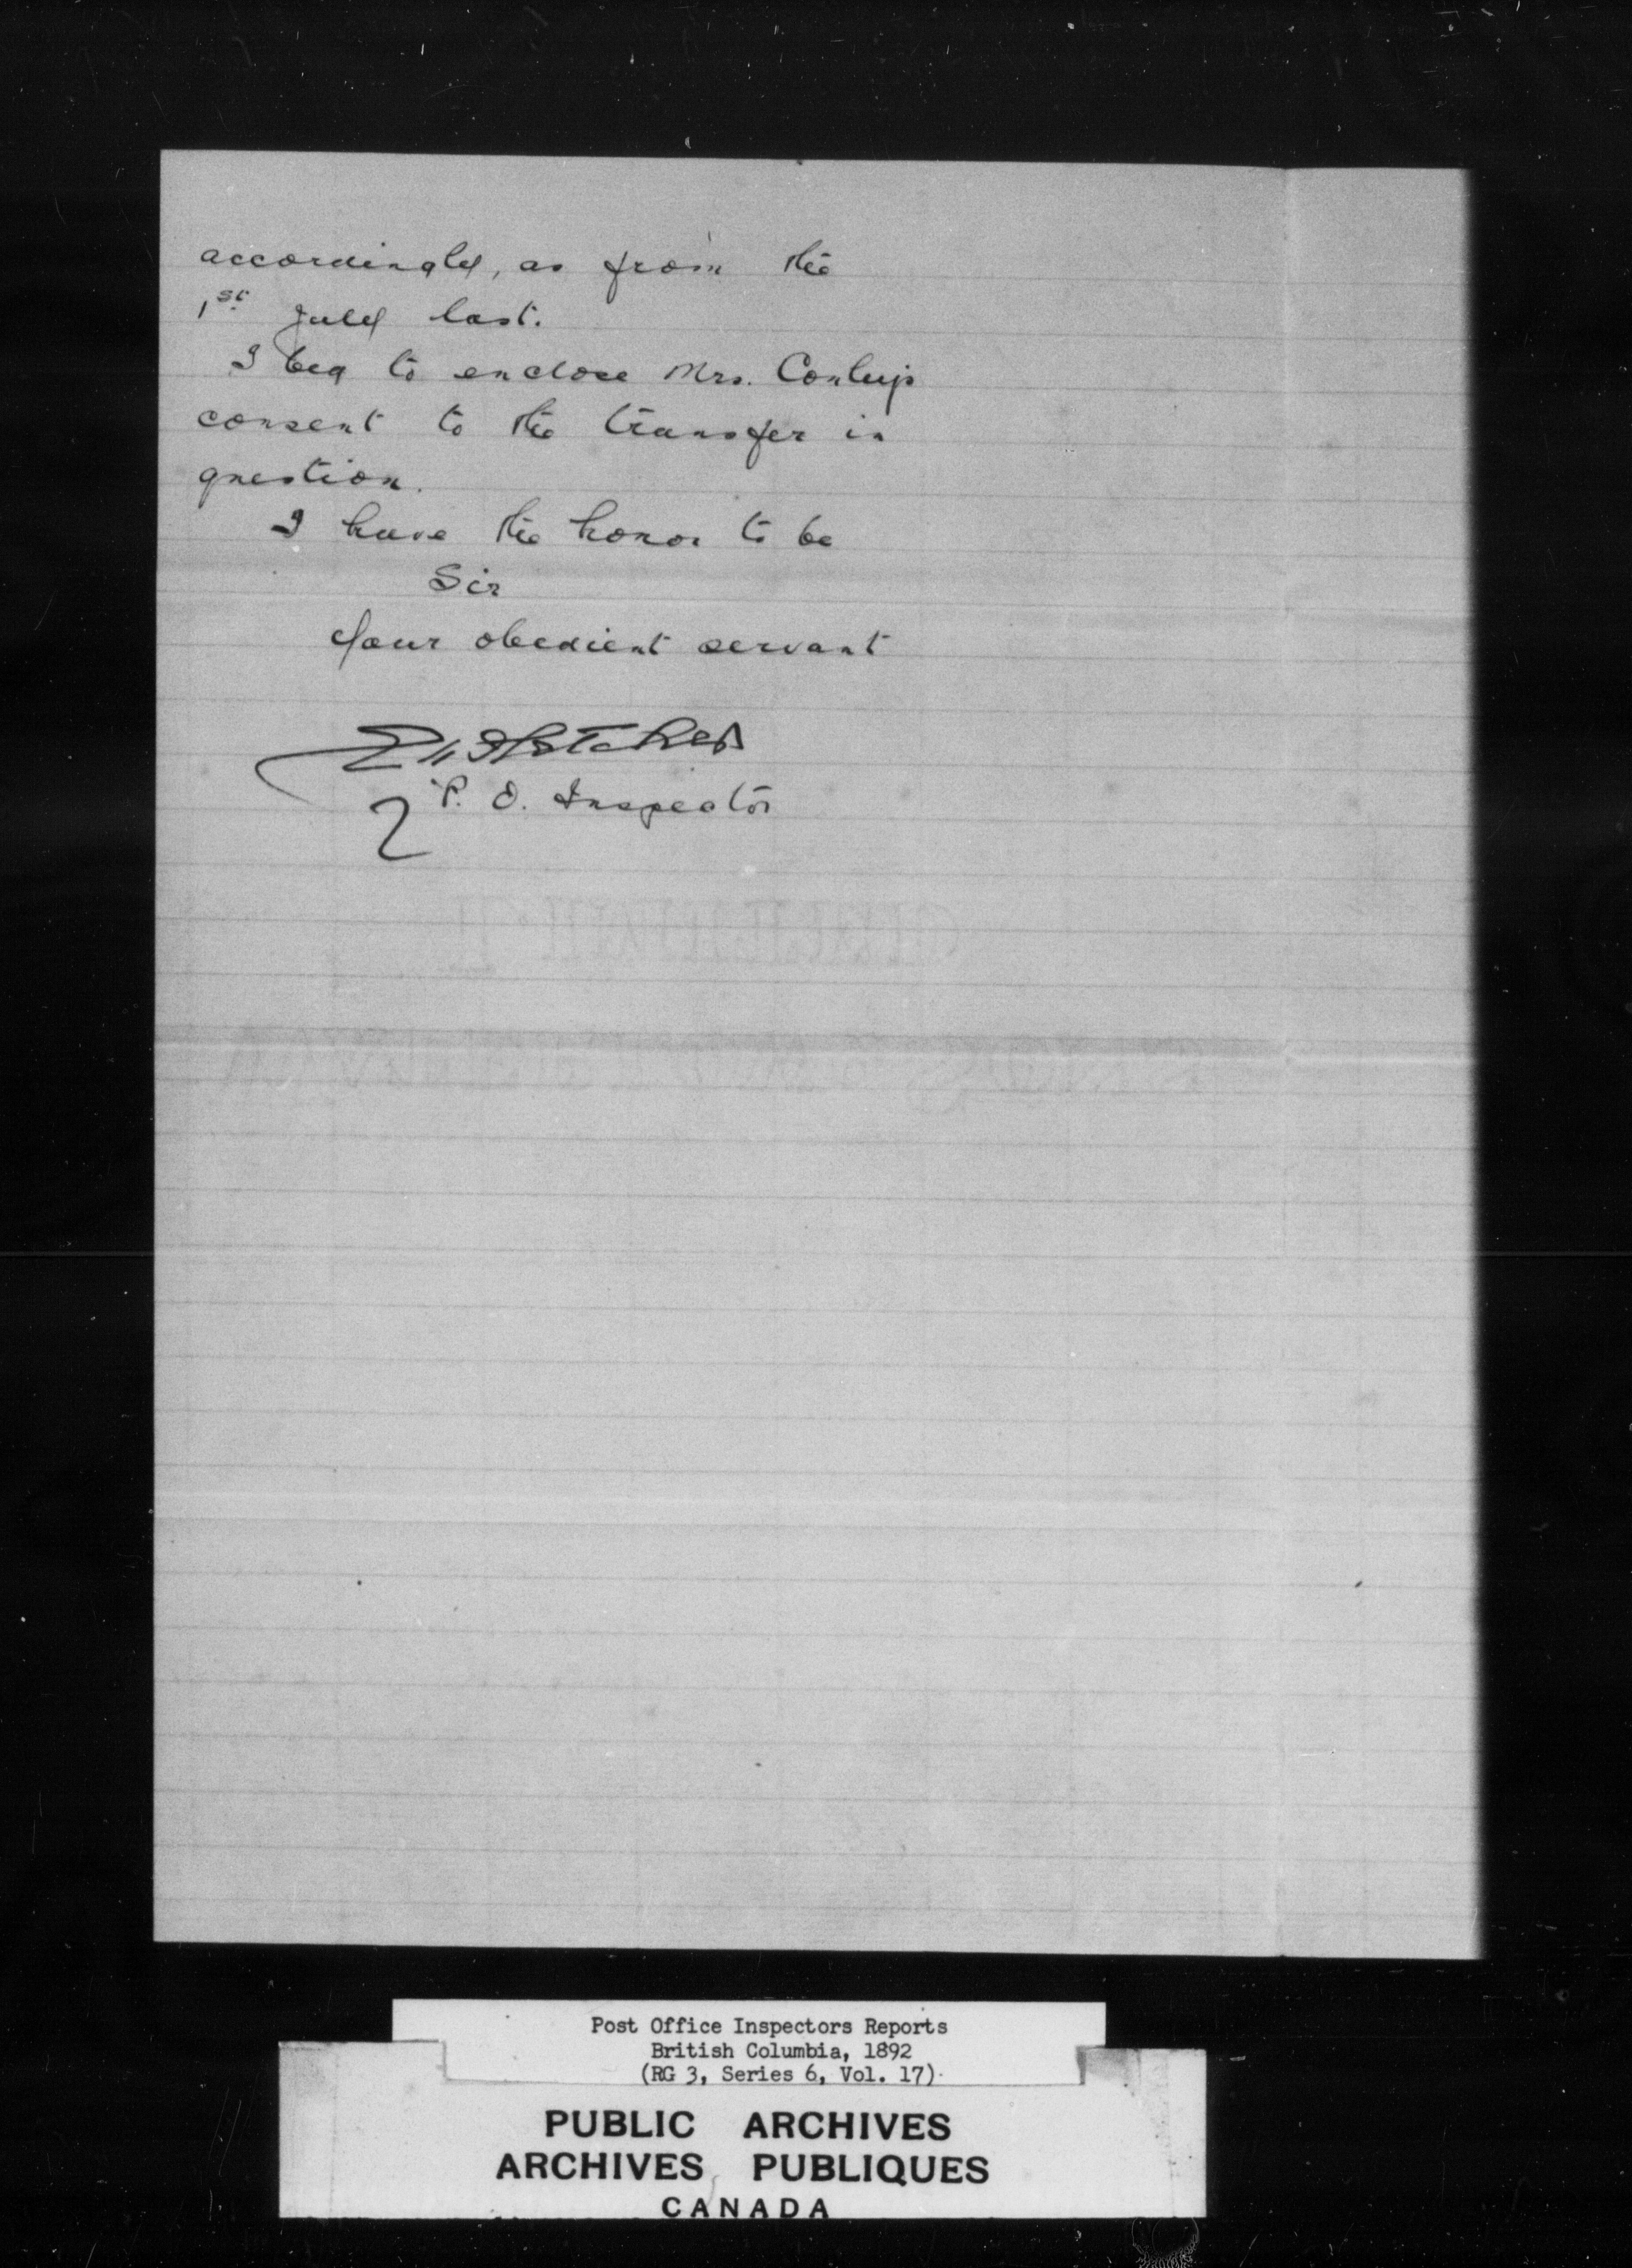 accordingly, as from the
1st July last.
I beg to enclose Mrs. Conley's
consent to the transfer in
question.
I have the honor to be
Sir
Your obedient servant
E H Fletcher
P. O. Inspector
Post Office Inspectors Reports
British Columbia, 1892
(RG 3, Series 6, Vol. 17)
PUBLIC ARCHIVES
ARCHIVES PUBLIQUES
CANADA